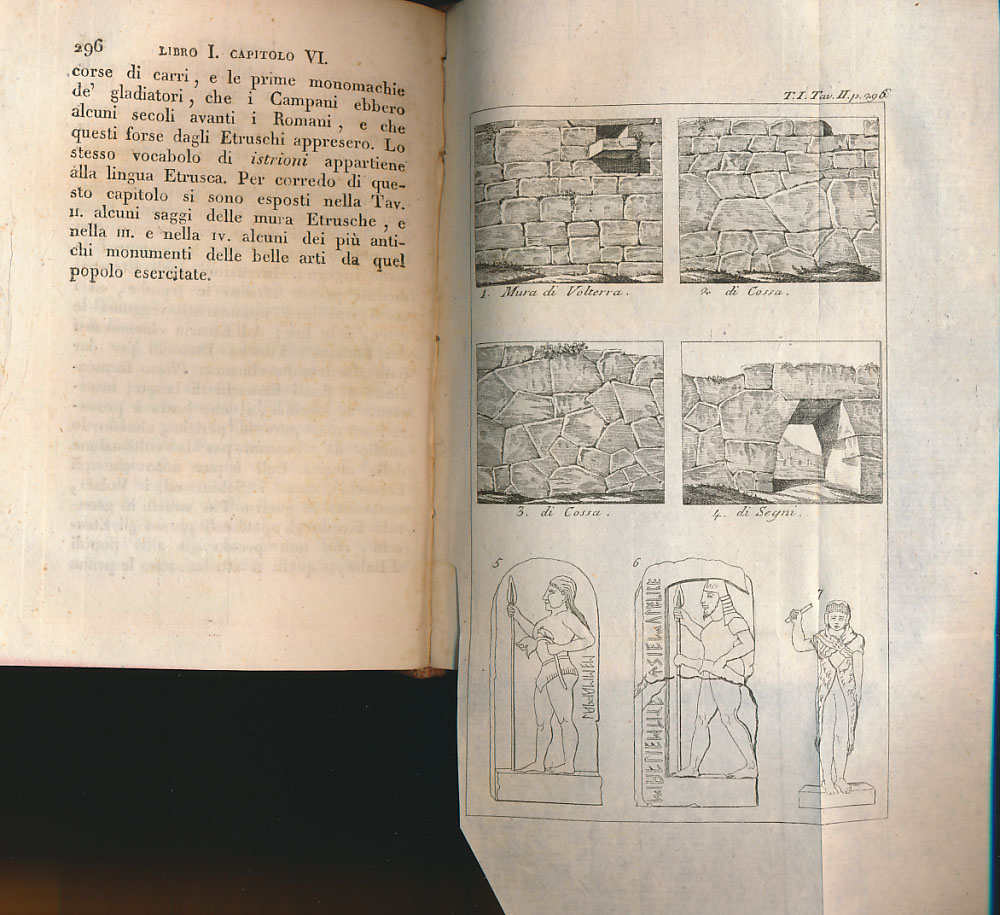 296 LIBRO I. CAPITOLO VI.
corse di carri, e le prime monomachie
de' gladiatori, che i Campani ebbero
alcuni secoli avanti i Romani, e che
questi forse dagli Etruschi appresero. Lo
stesso vocabolo di istrioni appartiene
alla lingua Etrusca. Per corredo di que-
sto capitolo si sono esposti nella Tav.
II. alcuni saggi delle mura Etrusche, e
nella III. e nella IV. alcuni dei più anti-
chi monumenti delle belle arti da quel
popolo esercitate.
T. I. Tav. II. p. 296
1. Mura di Volterra.
2. di Cossa.
3. di Cossa.
4. di Segni.
5
6
7